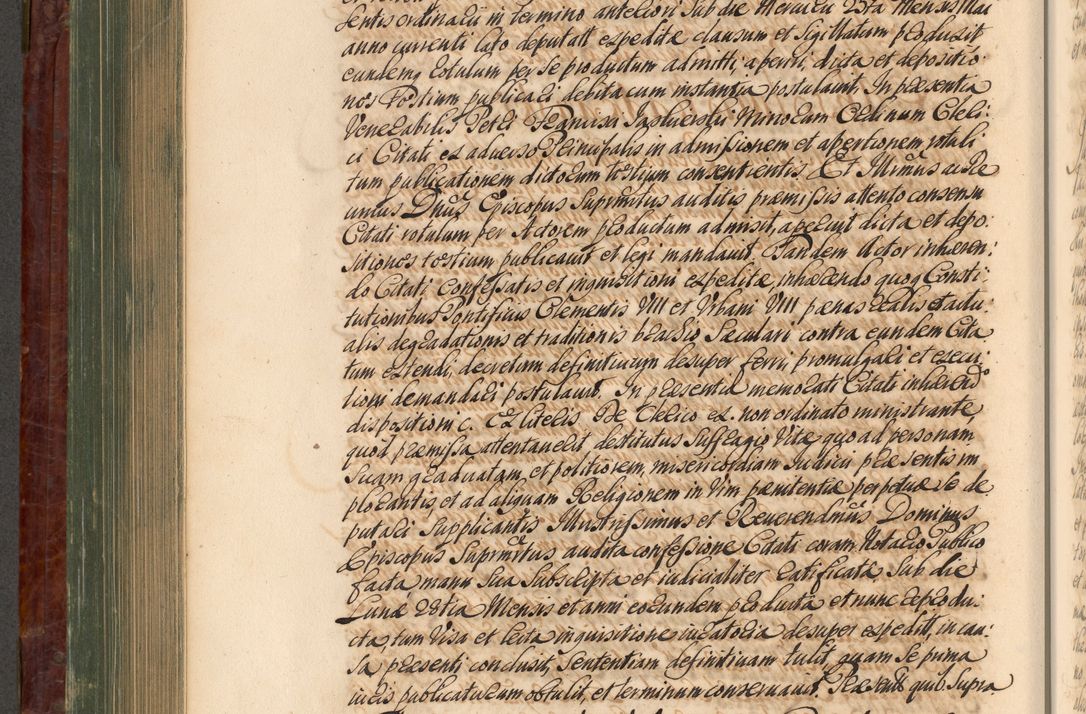 sentis ordinarii in termino anteriori sub die Mercurii 23tia Mensis Mai
anno currenti lato deputati expeditæ clausum et sigillatum produxit
eundemq rotulum per se productum admitti, aperiri, dicta et depositio-
nes Testium publicari debita cum instantia postulavit. In præsentia
Venerabilis Petri Francisci Minorum Ordinum Cleri-
ci Citati ex adverso Principalis in admissionem et apertionem rotuli
tum publicationem dictorum testium consentientis Et Illrimus
Dnus Episcopus Suprmitus auditis præmissis attento consensu
Citati rotulum per Actorem productum admisit, aperuit dicta et depo-
sitiones testium publicavit et legi mandavit. Tandem Actor inhæren-
do Citati confessatis et inquisitioni expeditæ, inhærendo quoq Consti-
tutionibus Pontificiis Clementis VIII et Urbani VIII pænas realis et actu-
alis degradationis et traditionis brachio Sæculari contra eundem Cita
tum extendi, decretum definitivum desuper ferri, promulgari et execu-
tioni demandari postulavit. In præsentia memorati Citati inhærendo
dispositioni c. Ex literis De Clerico ex. non ordinato ministrante,
quod præmissa attentaverit destitutus suffragio Vitæ quo ad personam
suam graduatam, et politiorem, misericordiam Iudicii præsentis im
plorantis, et ad aliquam Religionem in vim pænitentiæ perpetuæ se de
putari supplicantis Illustrissimus et Reverendmus Dominus
Episcopus Suprmitus audita confessione Citati coram Notario Publico
facta, manu sua subscripta et iudicialiter ratificata, sub die
Lunæ 28tia Mensis et anni eorundem producta et nunc reprodu-
cta, tum visa et lecta inquisitione iuratoria desuper expedit, in cau-
sa præsenti conclusit, Sententiam definitivam tulit, quam se prima
iuris publicaturum obtulit, et terminum conservavit. Præsentt quib supra